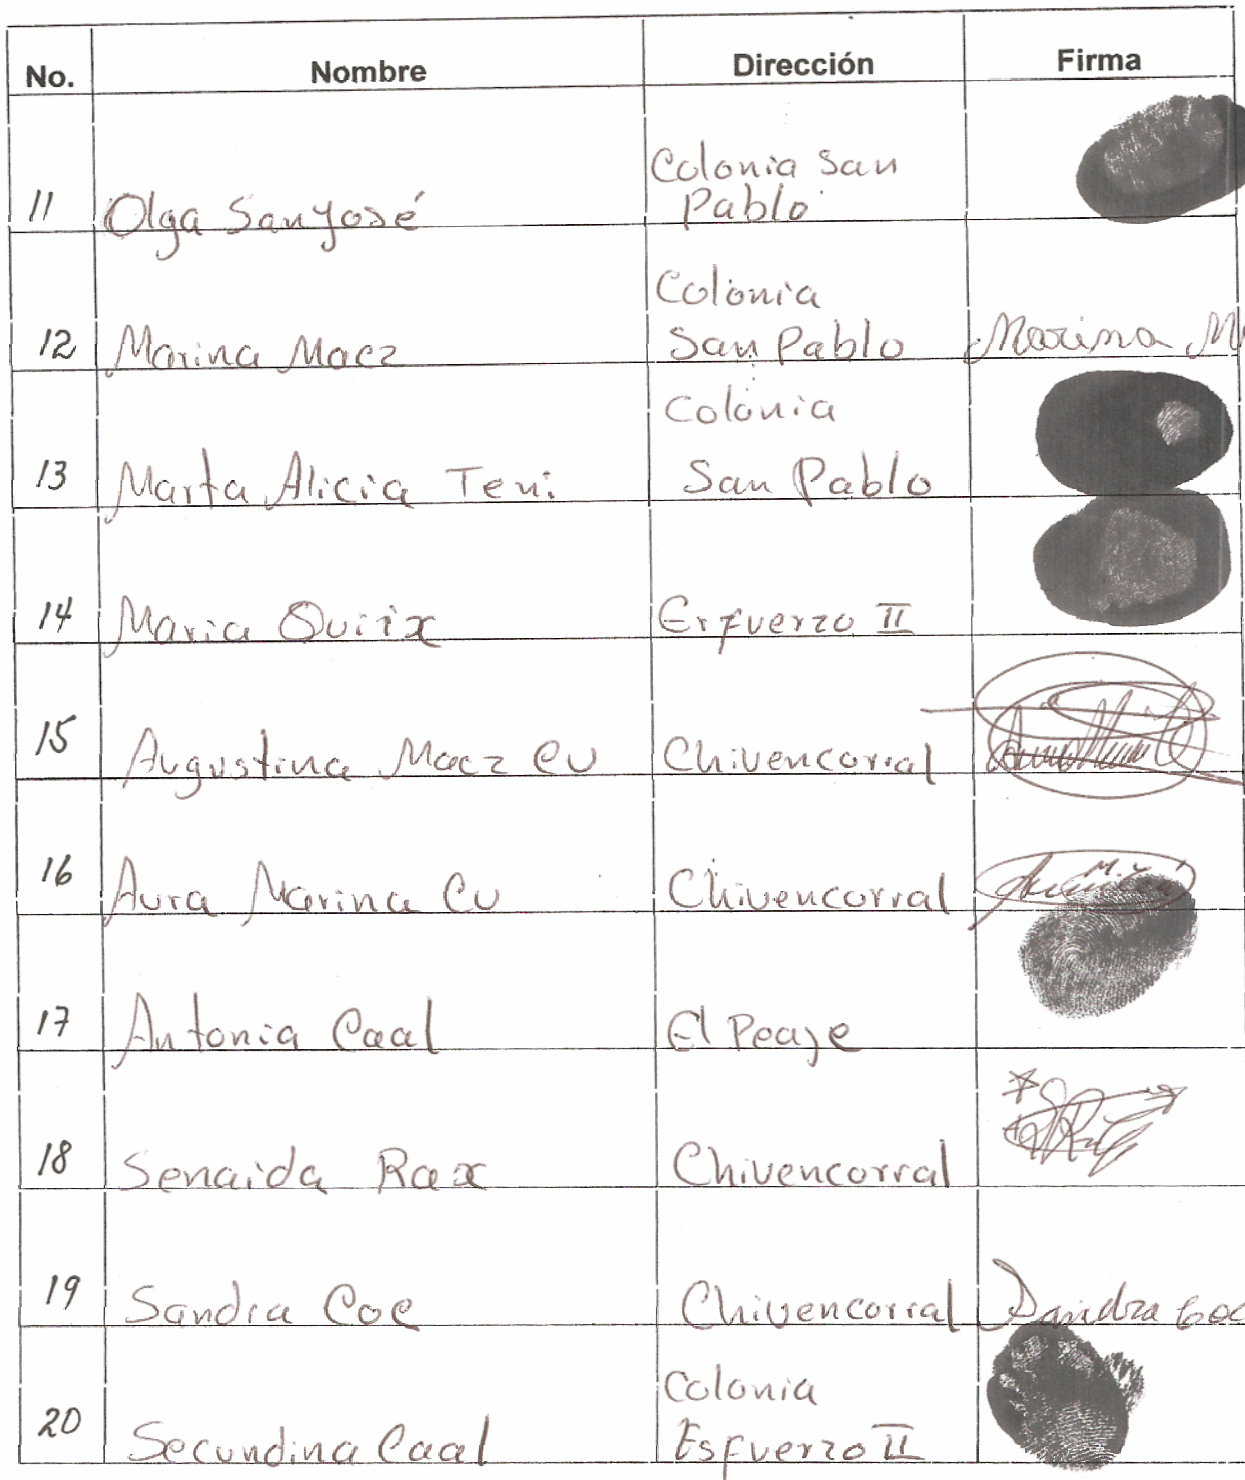 No. Nombre Dirección Firma
Colonia San
11 Olga SanJosé Pablo
Colonia
12 Marina Macz San Pablo Marina M
Colonia
13 Marta Alicia Teni San Pablo
14 Maria Quiix Erfuerzo II
15 Augustina Macz Cu Chivencorral
16 Aura Marina Cu Chivencorral
17 Antonia Caal El Peaje
18 Senaida Rax Chivencorral
19 Sandra Coc Chivencorral Sandra Coc
Colonia
20 Secundina Caal Esfuerzo II